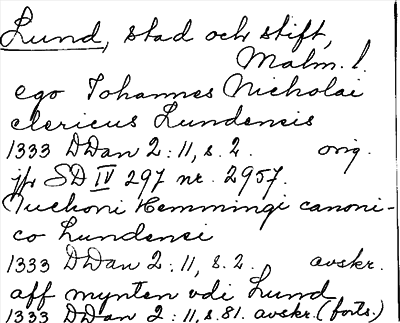 Lund, stad och stift,
Malm. l.
ego Johannes Nicholai
clericus Lundensis
1333 DDan 2:11, s. 2. orig.
jfr SD IV 297 nr. 2957.
Tuchoni Hemmingi canoni-
co Lundensi
1333 DDan 2:11, s. 2. avskr.
aff mynten vdi Lund
1333 DDan 2:11, s. 81. avskr. (forts.)